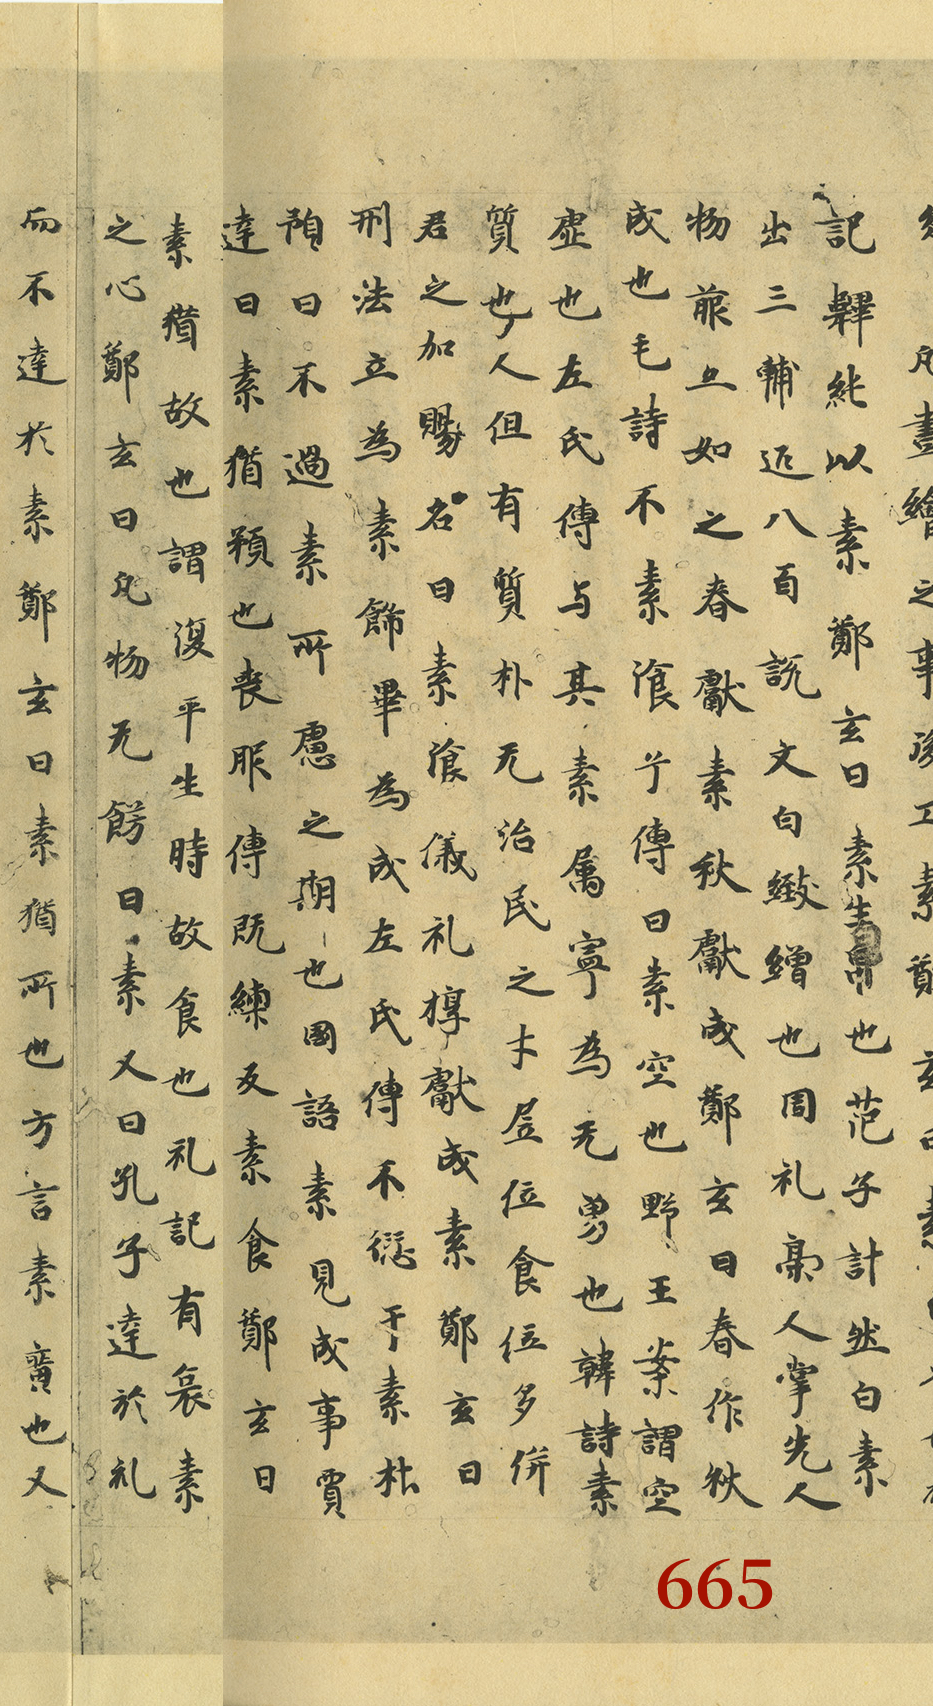 凡畫繪之事後工素鄭玄曰素
記繹紕以素鄭玄曰素生帛也范子計然白素
出三輔近八百説文白緻繒也周礼槀人掌兂人
物蔉亦如之春獻素秋獻成鄭玄曰春作秋
成也毛詩不素飡兮傳曰素空也野王案謂空
虛也左氏傳与其素厲寧為无勇也韓詩素
質也人但有質朴无治民之才居位食位多併
君之加賜名曰素飡儀礼椁獻成素鄭玄曰
刑法立為素飾畢為成左氏傳不愆于素杜
預曰不過素所慮之期也國語素見成事賈
逵曰素猶預也喪服傳既練反素食鄭玄曰
素猶故也謂復平生時故食也礼記有哀素
之心鄭玄曰凡物无餝曰素又曰孔子達於礼
而不達於素鄭玄曰素猶所也方言素廣也又
665